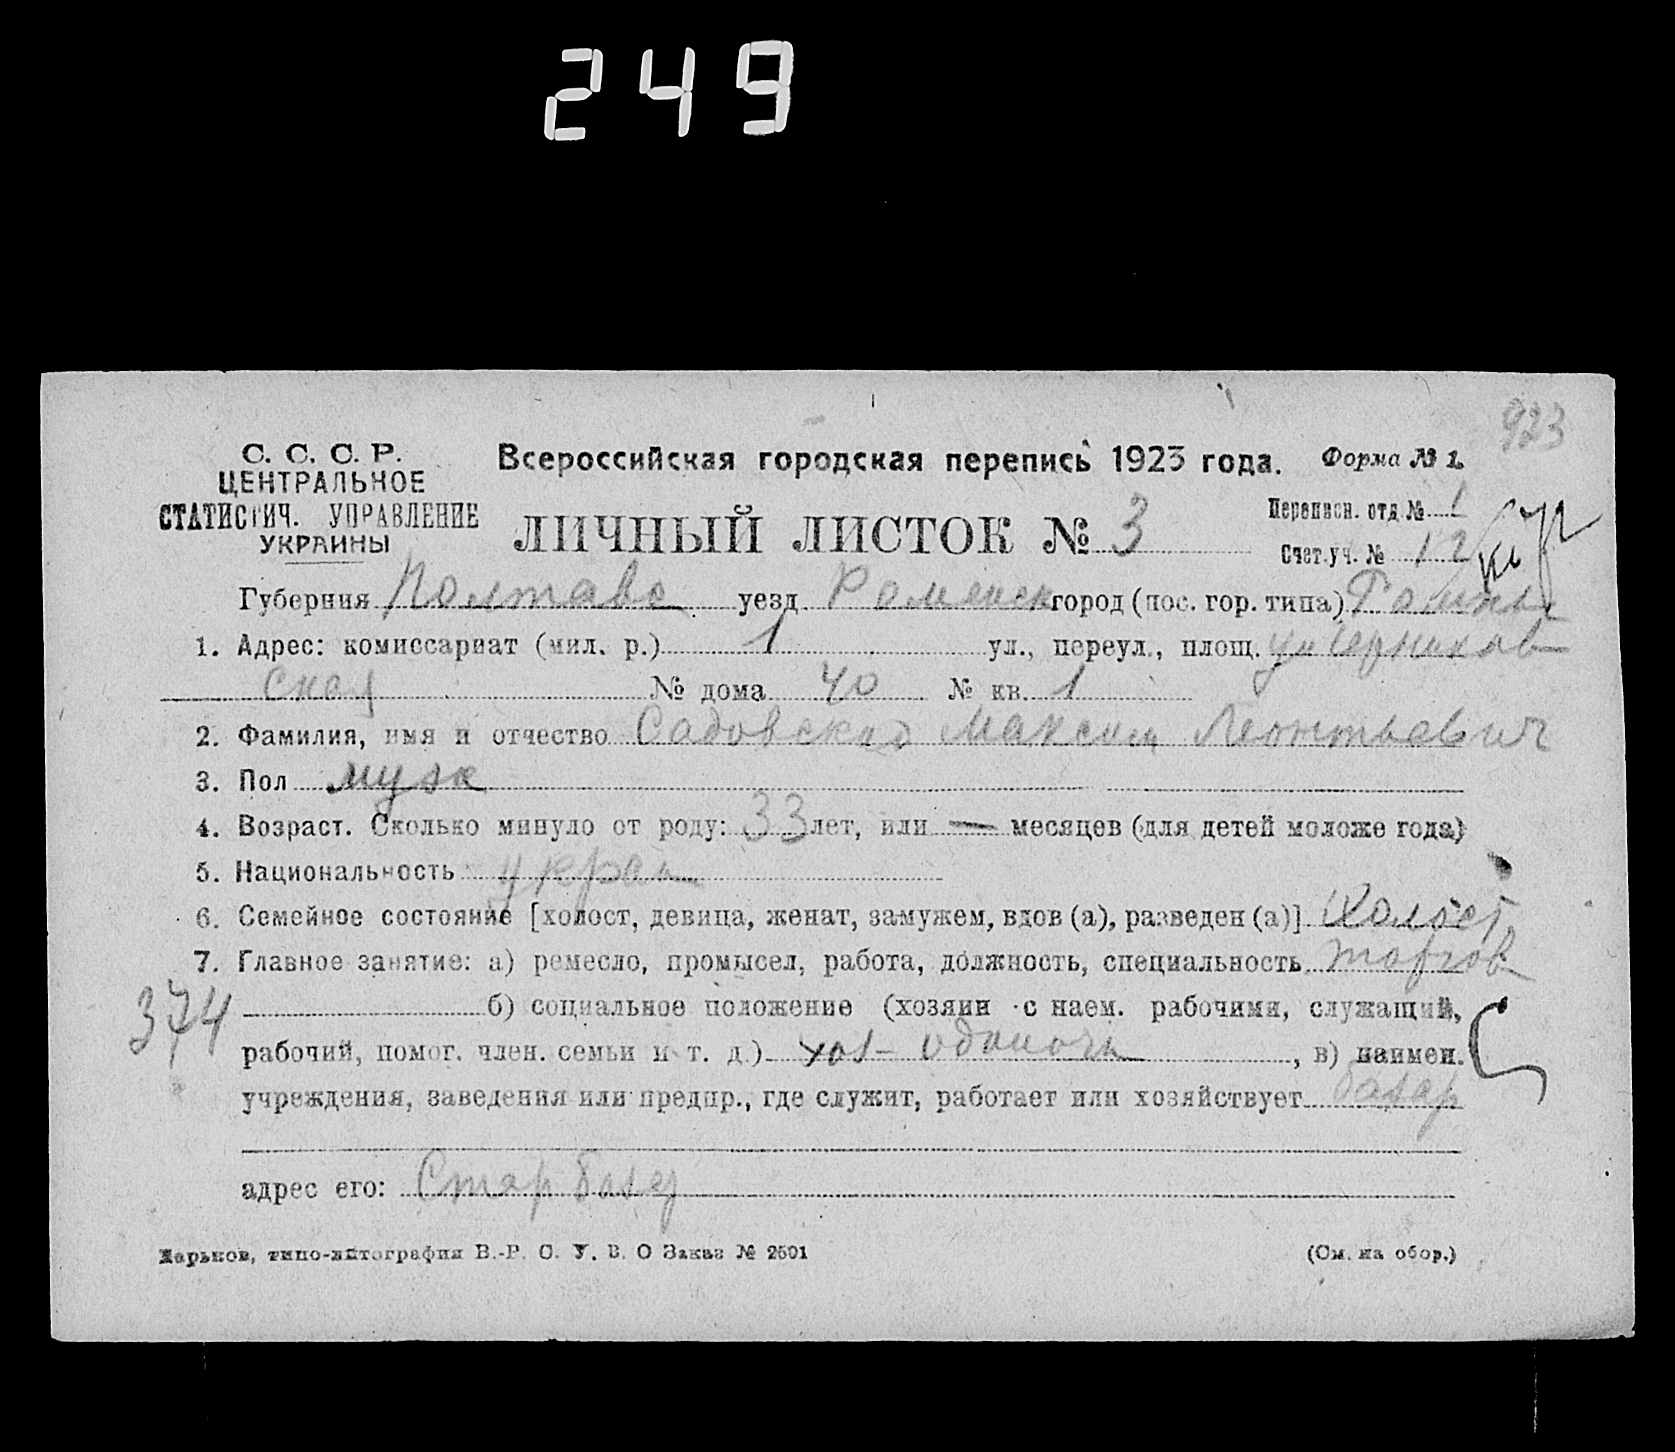 249
923
С. С. С. Р.
ЦЕНТРАЛЬНОЕ
СТАТИСТИЧ. УПРАВЛЕНИЕ
УКРАИНЫ
Всероссийская городская перепись 1923 года. Форма № 1.
ЛИЧНЫЙ ЛИСТОК № 3
Переписн. отд. № 1
Счет. уч. № 12
Губерния Полтавс уезд Роменск город (пос. гор. типа) Ромны
1. Адрес: комиссариат (мил. р.) 1 ул., переул., площ.
ская № дома 40 № кв. 1
2. Фамилия, имя и отчество Садовский Максим Леонтьевич
3. Пол муж
4. Возраст. Сколько минуло от роду: 33 лет, или — месяцев (для детей моложе года)
5. Национальность украин
6. Семейное состояние [холост, девица, женат, замужем, вдов (а), разведен (а)] Холост
7. Главное занятие: а) ремесло, промысел, работа, должность, специальность торгов
374
б) социальное положение (хозяин с наем. рабочими, служащий,
рабочий, помог. член. семьи и т. д.) хоз - одиночк, в) наимен.
учреждения, заведения или предпр., где служит, работает или хозяйствует базар
адрес его: Стар база
Харьков, типо-литография В.-Р. С. У. В. О Заказ № 2501
(См. на обор.)